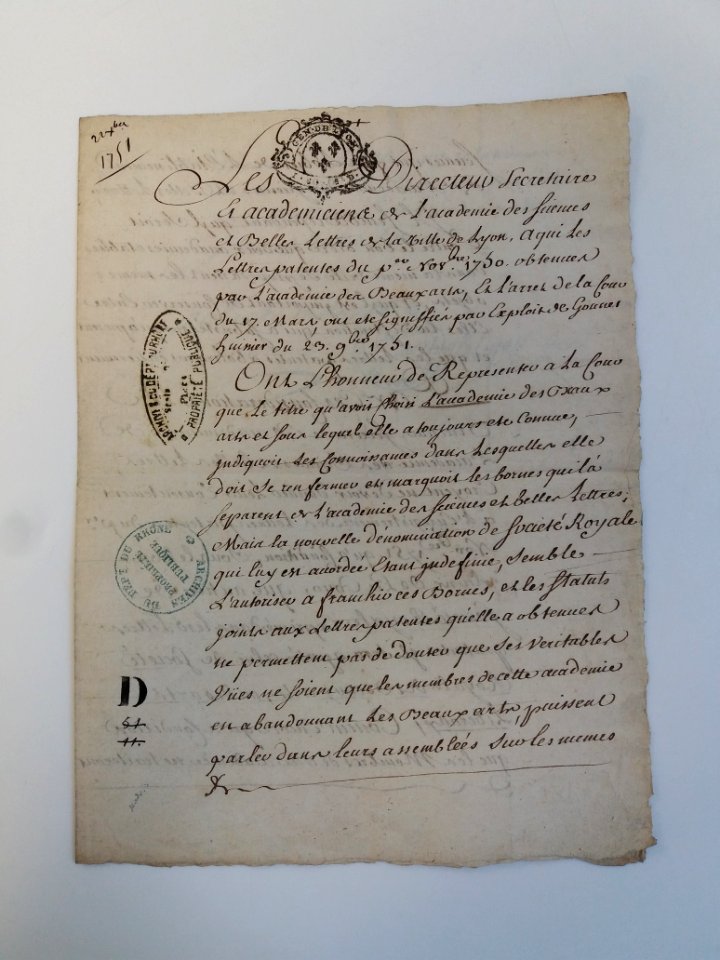 22 xbre
1751
GEN. DE LYON
Les Directeur Secretaire
Et academiciens de L'academie des Sciences
et Belles Lettres de la ville de Lyon, a qui Les
Lettres patentes du per. Novbre. 1750. obtenues
par L'academie des Beaux arts, Et L'arret de la Cour
du 17. Mars, ont eté signiffiés par Exploit de Gonnet
huissier du 23. 9bre 1751.
Ont L'honneur de Representer a La Cour
que Le titre qu'avoit Choisi L'academie des Beaux
arts et sous lequel elle a toujours eté Connue,
jndiquoit Les Connoissances dans Lesquelles elle
doit Se renfermer et marquoit les bornes qui la
separent de L'academie des sciences et belles Lettres;
Mais la nouvelle dénomination de Société Royale
qui luy est accordée Etant jndefinie, Semble
L'autoriser a franchir ces Bornes, et les Statuts
joints aux Lettres patentes quelle a obtenues
ne permettent pas de Douter que Ses veritables
Vües ne soient que les membres de cette academie
en abandonnant Les Beaux arts, puissent
parler dans leurs assemblées Sur les memes
ARCHIVES DU DEPT DU RHONE
PROPRIÉTÉ PUBLIQUE
ARCHIVES DU DEPT DU RHÔNE
PROPRIÉTÉ
PUBLIQUE
D